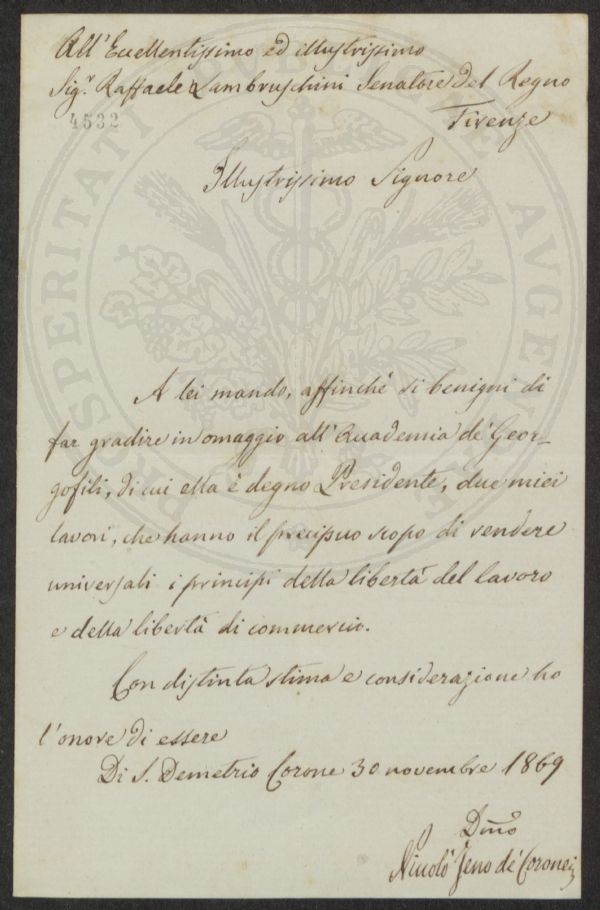 All'Eccellentissimo ed illustrissimo
Sig.r Raffaele Lambruschini Senatore del Regno
4532
Firenze
Illustrissimo Signore
A lei mando, affinchè si benigni di
far gradire in omaggio all'Accademia de' Geor-
gofili, di cui ella è degno Presidente, due miei
lavori, che hanno il precipuo scopo di rendere
universali i principi della libertà del lavoro
e della libertà di commercio.
Con distinta stima e considerazione ho
l'onore di essere
Di S. Demetrio Corone 30 novembre 1869
Dmo
Nicolò Jeno de' Coronei
PROSPERITATI PUBLICAE AUGENDAE